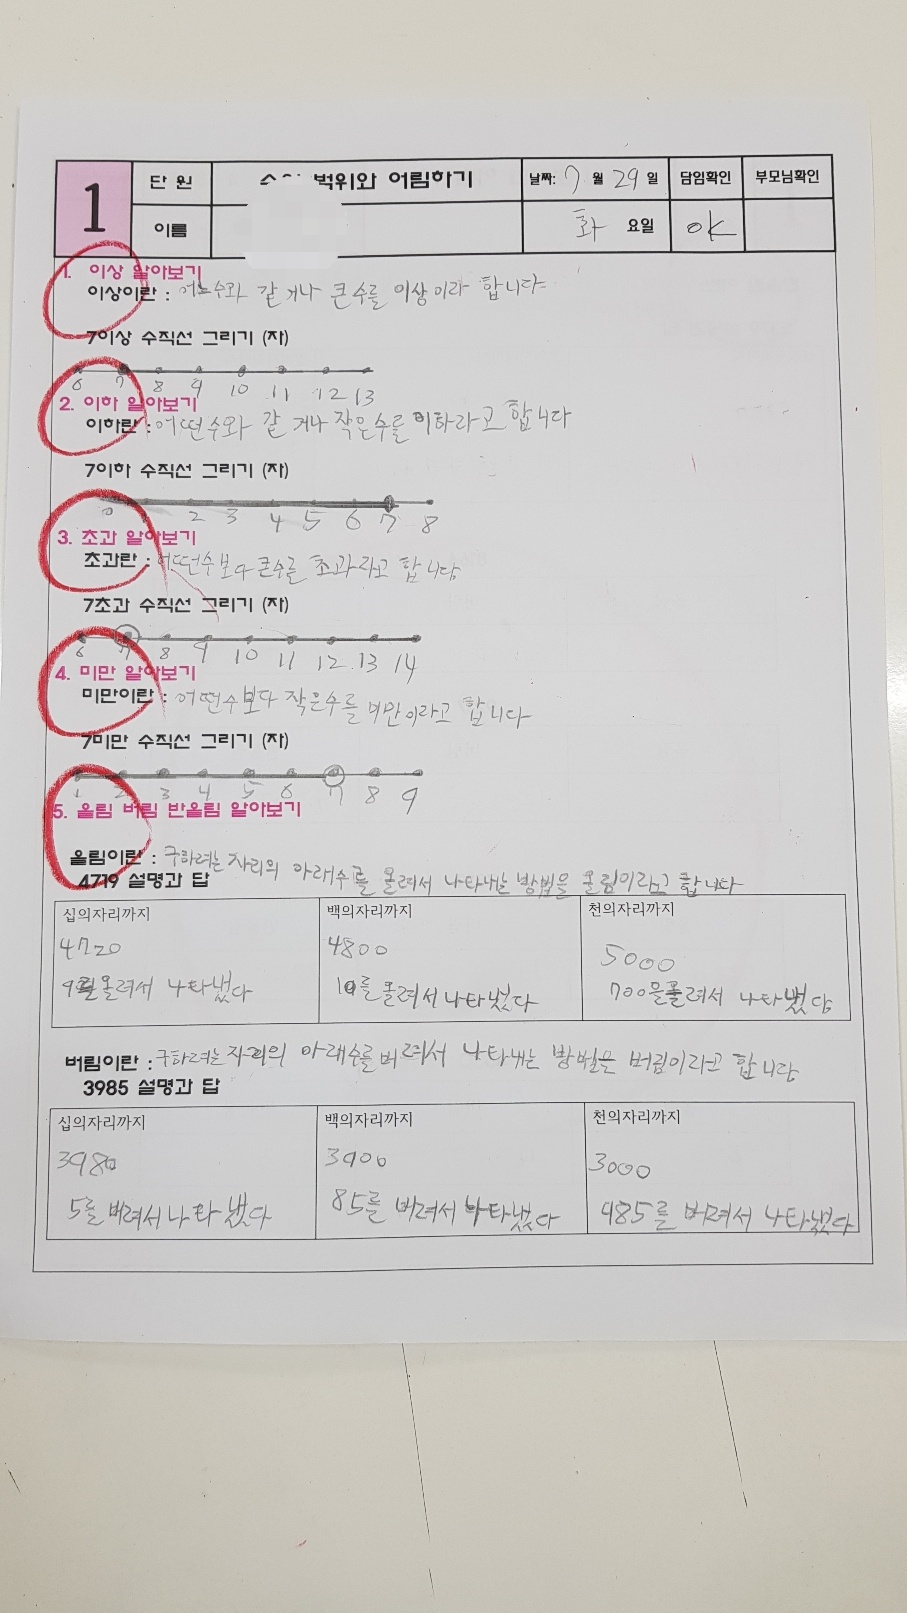 1
단 원
범위와 어림하기
날짜: 7 월 29 일
담임확인
부모님확인
이름
화 요일
OK
1. 이상 알아보기
이상이란 : 수와 같거나 큰 수를 이상이라 합니다
7이상 수직선 그리기 (자)
6 7 8 9 10 11 12 13
2. 이하 알아보기
이하란 : 어떤수와 같거나 작은수를 이하라고 합니다
7이하 수직선 그리기 (자)
0 1 2 3 4 5 6 7 8
3. 초과 알아보기
초과란 : 어떤수보다 큰수를 초과라고 합니다
7초과 수직선 그리기 (자)
6 7 8 9 10 11 12 13 14
4. 미만 알아보기
미만이란 : 어떤수보다 작은수를 미만이라고 합니다
7미만 수직선 그리기 (자)
1 2 3 4 5 6 7 8 9
5. 올림 버림 반올림 알아보기
올림이란 : 구하려는 자리의 아래수를 올려서 나타내는 방법을 올림이라고 합니다
4719 설명과 답
십의자리까지
4720
9를 올려서 나타냈다
백의자리까지
4800
19를 올려서 나타냈다
천의자리까지
5000
700을 올려서 나타냈다
버림이란 : 구하려는 자리의 아래수를 버려서 나타내는 방법을 버림이라고 합니다
3985 설명과 답
십의자리까지
3980
5를 버려서 나타냈다
백의자리까지
3900
85를 버려서 나타냈다
천의자리까지
3000
985를 버려서 나타냈다